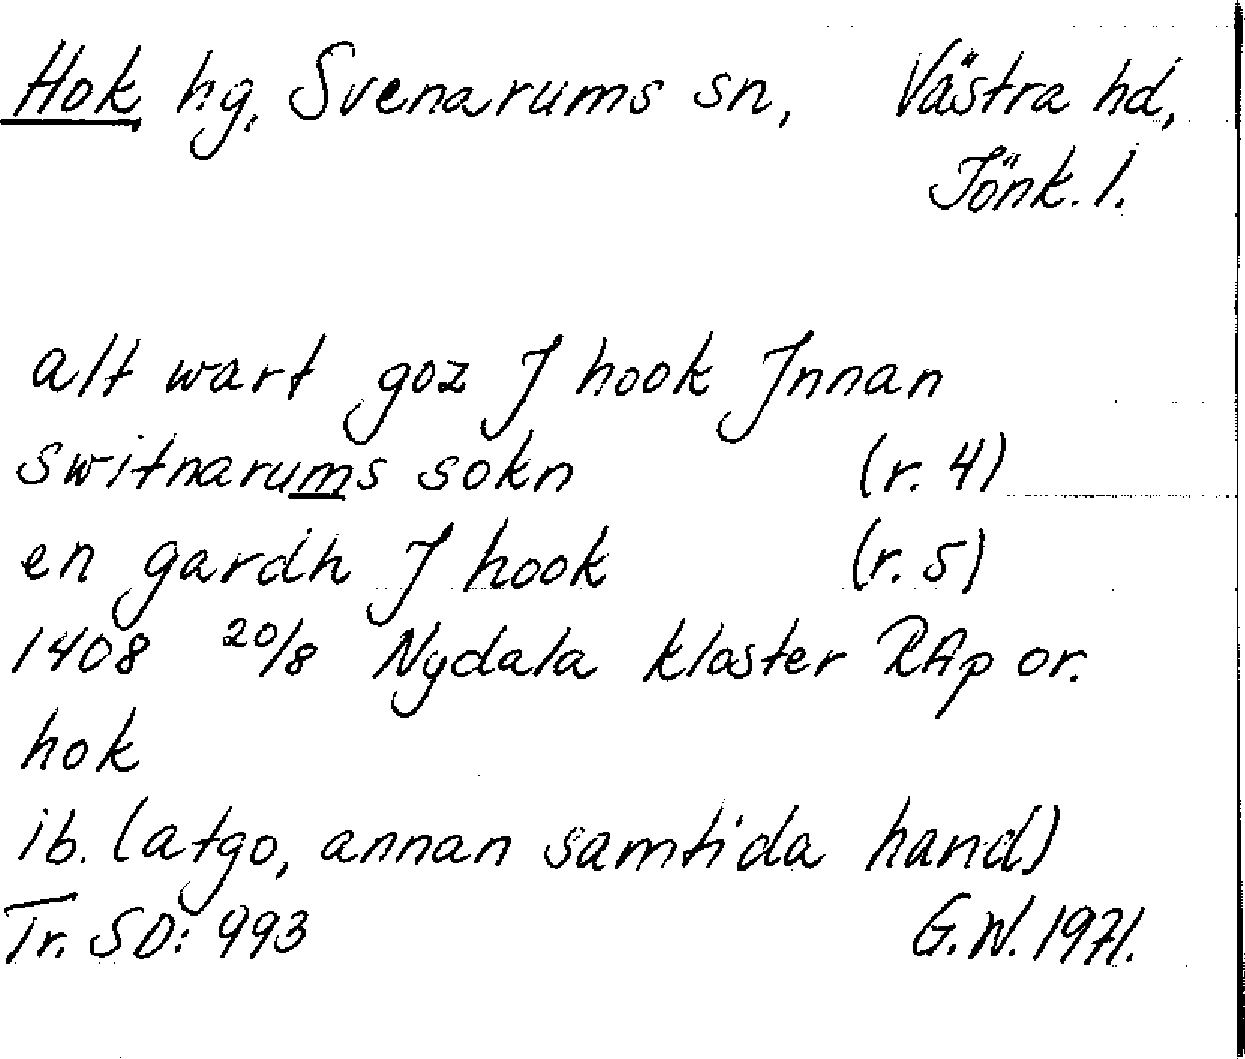 Hok hg, Svenarums sn, Västra hd,
Jönk. l.
alt wart goz J hook Jnnan
switnarums sokn (r. 4)
en gardh J hook (r. 5)
1408 20/8 Nydala kloster RAp or.
hok
ib. (atgo, annan samtida hand)
Tr. SD: 993 G.W. 1971.